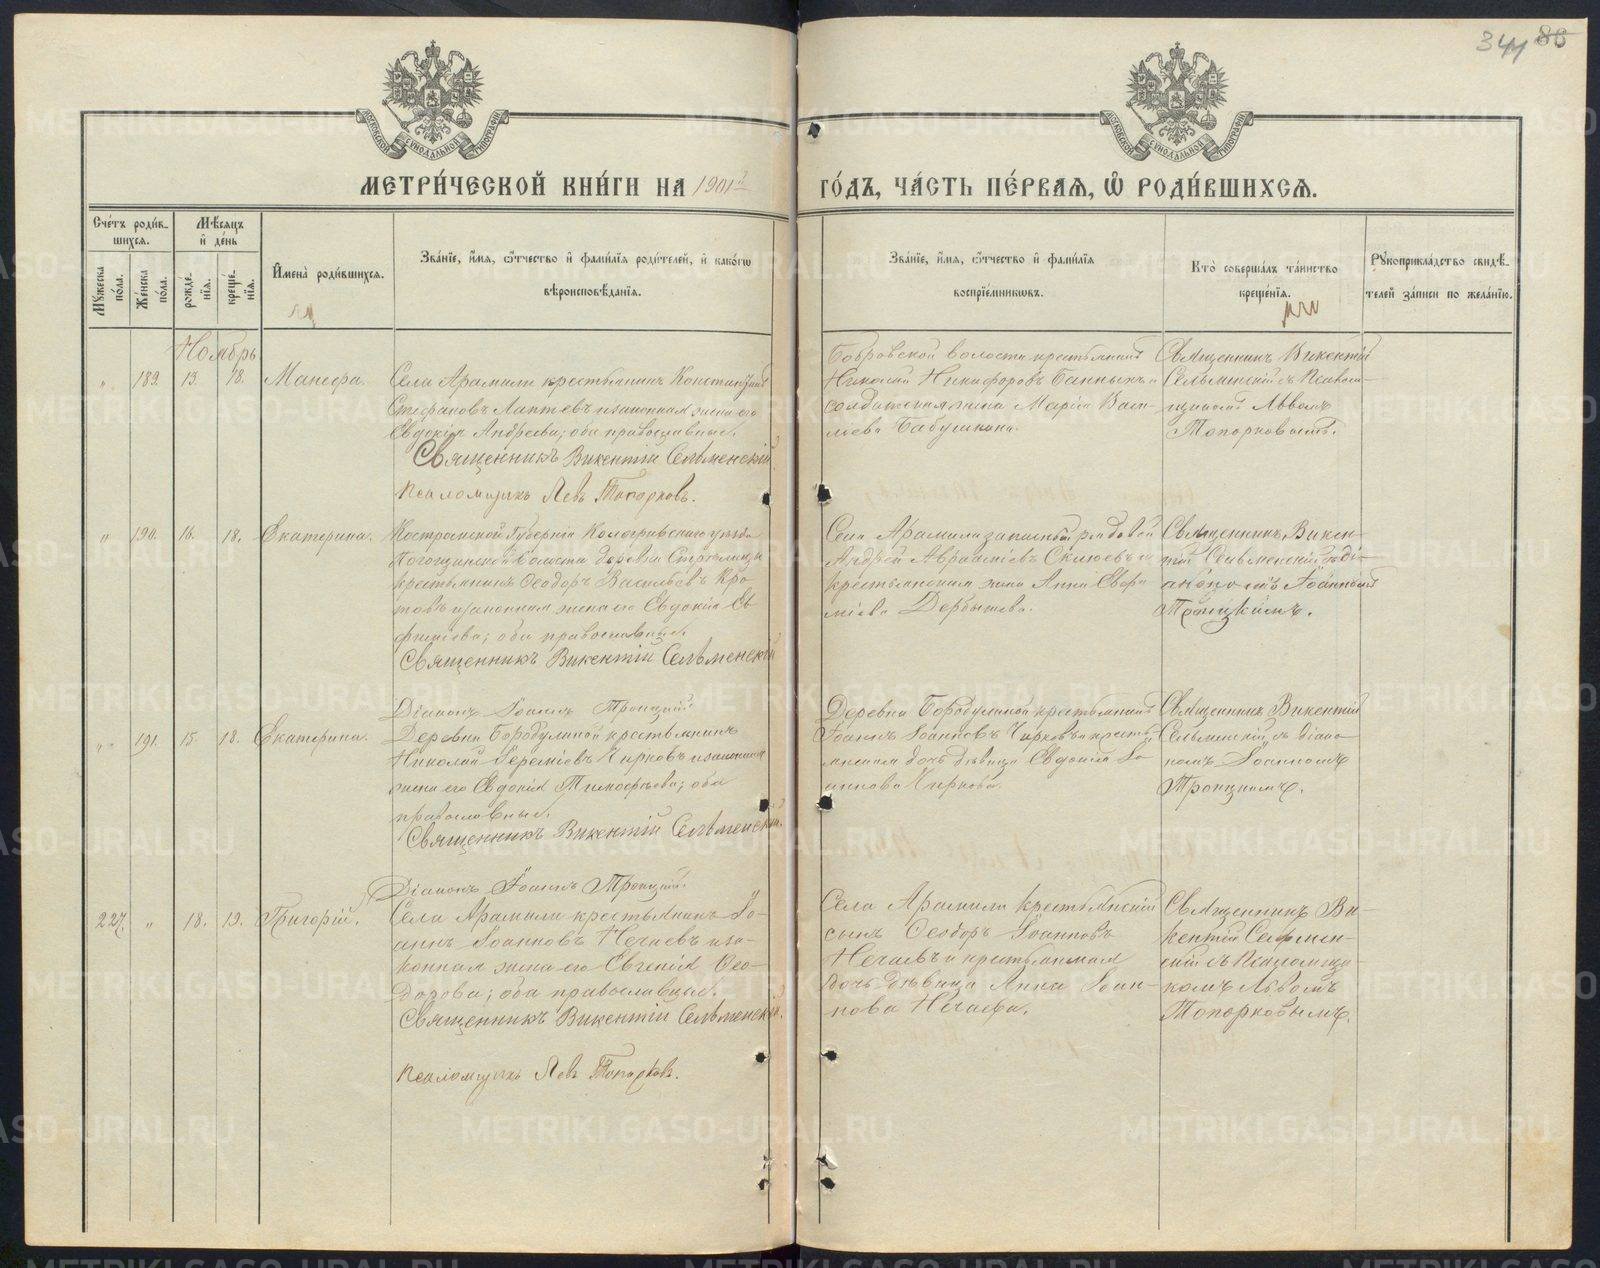 344 86
МОСКОВСКОЙ СѴНОДАЛЬНОЙ ТИПОГРАФІИ
МОСКОВСКОЙ СѴНОДАЛЬНОЙ ТИПОГРАФІИ
МЕТРИ́ЧЕСКОЙ КНИ́ГИ НА 1901й
ГО́ДЪ, ЧА́СТЬ ПЕ́РВАѦ, Ѽ РОДИ́ВШИХСѦ.
Сче́тъ роди́в-
шихсѧ.
Му́жеска по́ла.
Же́нска по́ла.
Мѣ́сѧцъ
и҆ де́нь
рожде́нїѧ.
креще́нїѧ.
И҆мена̀ роди́вшихсѧ.
Зва́нїе, и҆́мѧ, ѻ҆́тчество и҆ фами́лїѧ роди́телей, и҆ како́гѡ
вѣроисповѣ́данїѧ.
Зва́нїе, и҆́мѧ, ѻ҆́тчество и҆ фами́лїѧ
воспрїе́мникѡвъ.
Кто̀ соверша́лъ та́инство
креще́нїѧ.
Рꙋкоприкла́дство свидѣ́-
телей за́писи по жела́нїю.
Ноябрь
" 189. 13. 18. Манефа.
Села Арамили крестьянинъ Константинъ
Стефановъ Лаптевъ и законная жена его
Евдокія Андреева; оба православные.
Священникъ Викентій Сельменскій
Псаломщикъ Левъ Топорковъ.
Бобровской волости крестьянинъ
Николай Никифоровъ Банныхъ и
солдатская жена Марія Васи-
льева Бабушкина.
Священникъ Викентій
Сельменскій съ Псалом-
щикомъ Львомъ
Топорковымъ.
" 190. 16. 18. Екатерина.
Костромской Губерніи Кологривскаго уѣзда
волости деревни
крестьянинъ Ѳеодоръ Васильевъ Кро-
товъ и законная жена его Евдокія Ев-
фиміева; оба православные.
Священникъ Викентій Сельменскій
Діаконъ Іоаннъ Троицкій.
Села Арамили запасный рядовой
Андрей Аврааміевъ и
крестьянская жена Анна Евфи-
міева Дербышева.
Священникъ Викен-
тій Сельменскій съ ді-
акономъ Іоанномъ
Троицкимъ.
" 191. 15. 18. Екатерина.
Деревни Бородулиной крестьянинъ
Николай Іереміевъ Чирковъ и законная
жена его Евдокія Тимофеева; оба
православные.
Священникъ Викентій Сельменскій.
Діаконъ Іоаннъ Троицкій.
Деревни Бородулиной крестьянинъ
Іоаннъ Іоанновъ Чирковъ и кресть-
янская дочь дѣвица Евдокія Іо-
аннова Чиркова.
Священникъ Викентій
Сельменскій съ діако-
номъ Іоанномъ
Троицкимъ.
227. " 18. 19. Григорій.
Села Арамили крестьянинъ Іо-
аннъ Іоанновъ Нечаевъ и за-
конная жена его Евгенія Ѳео-
дорова; оба православные.
Священникъ Викентій Сельменскій.
Псаломщикъ Левъ Топорковъ.
Села Арамили крестьянскій
сынъ Ѳеодоръ Іоанновъ
Нечаевъ и крестьянская
дочь дѣвица Анна Іоан-
нова Нечаева.
Священникъ Ви-
кентій Сельмен-
скій съ Псаломщи-
комъ Львомъ
Топорковымъ.
METRIKI.GASO-URAL.RU